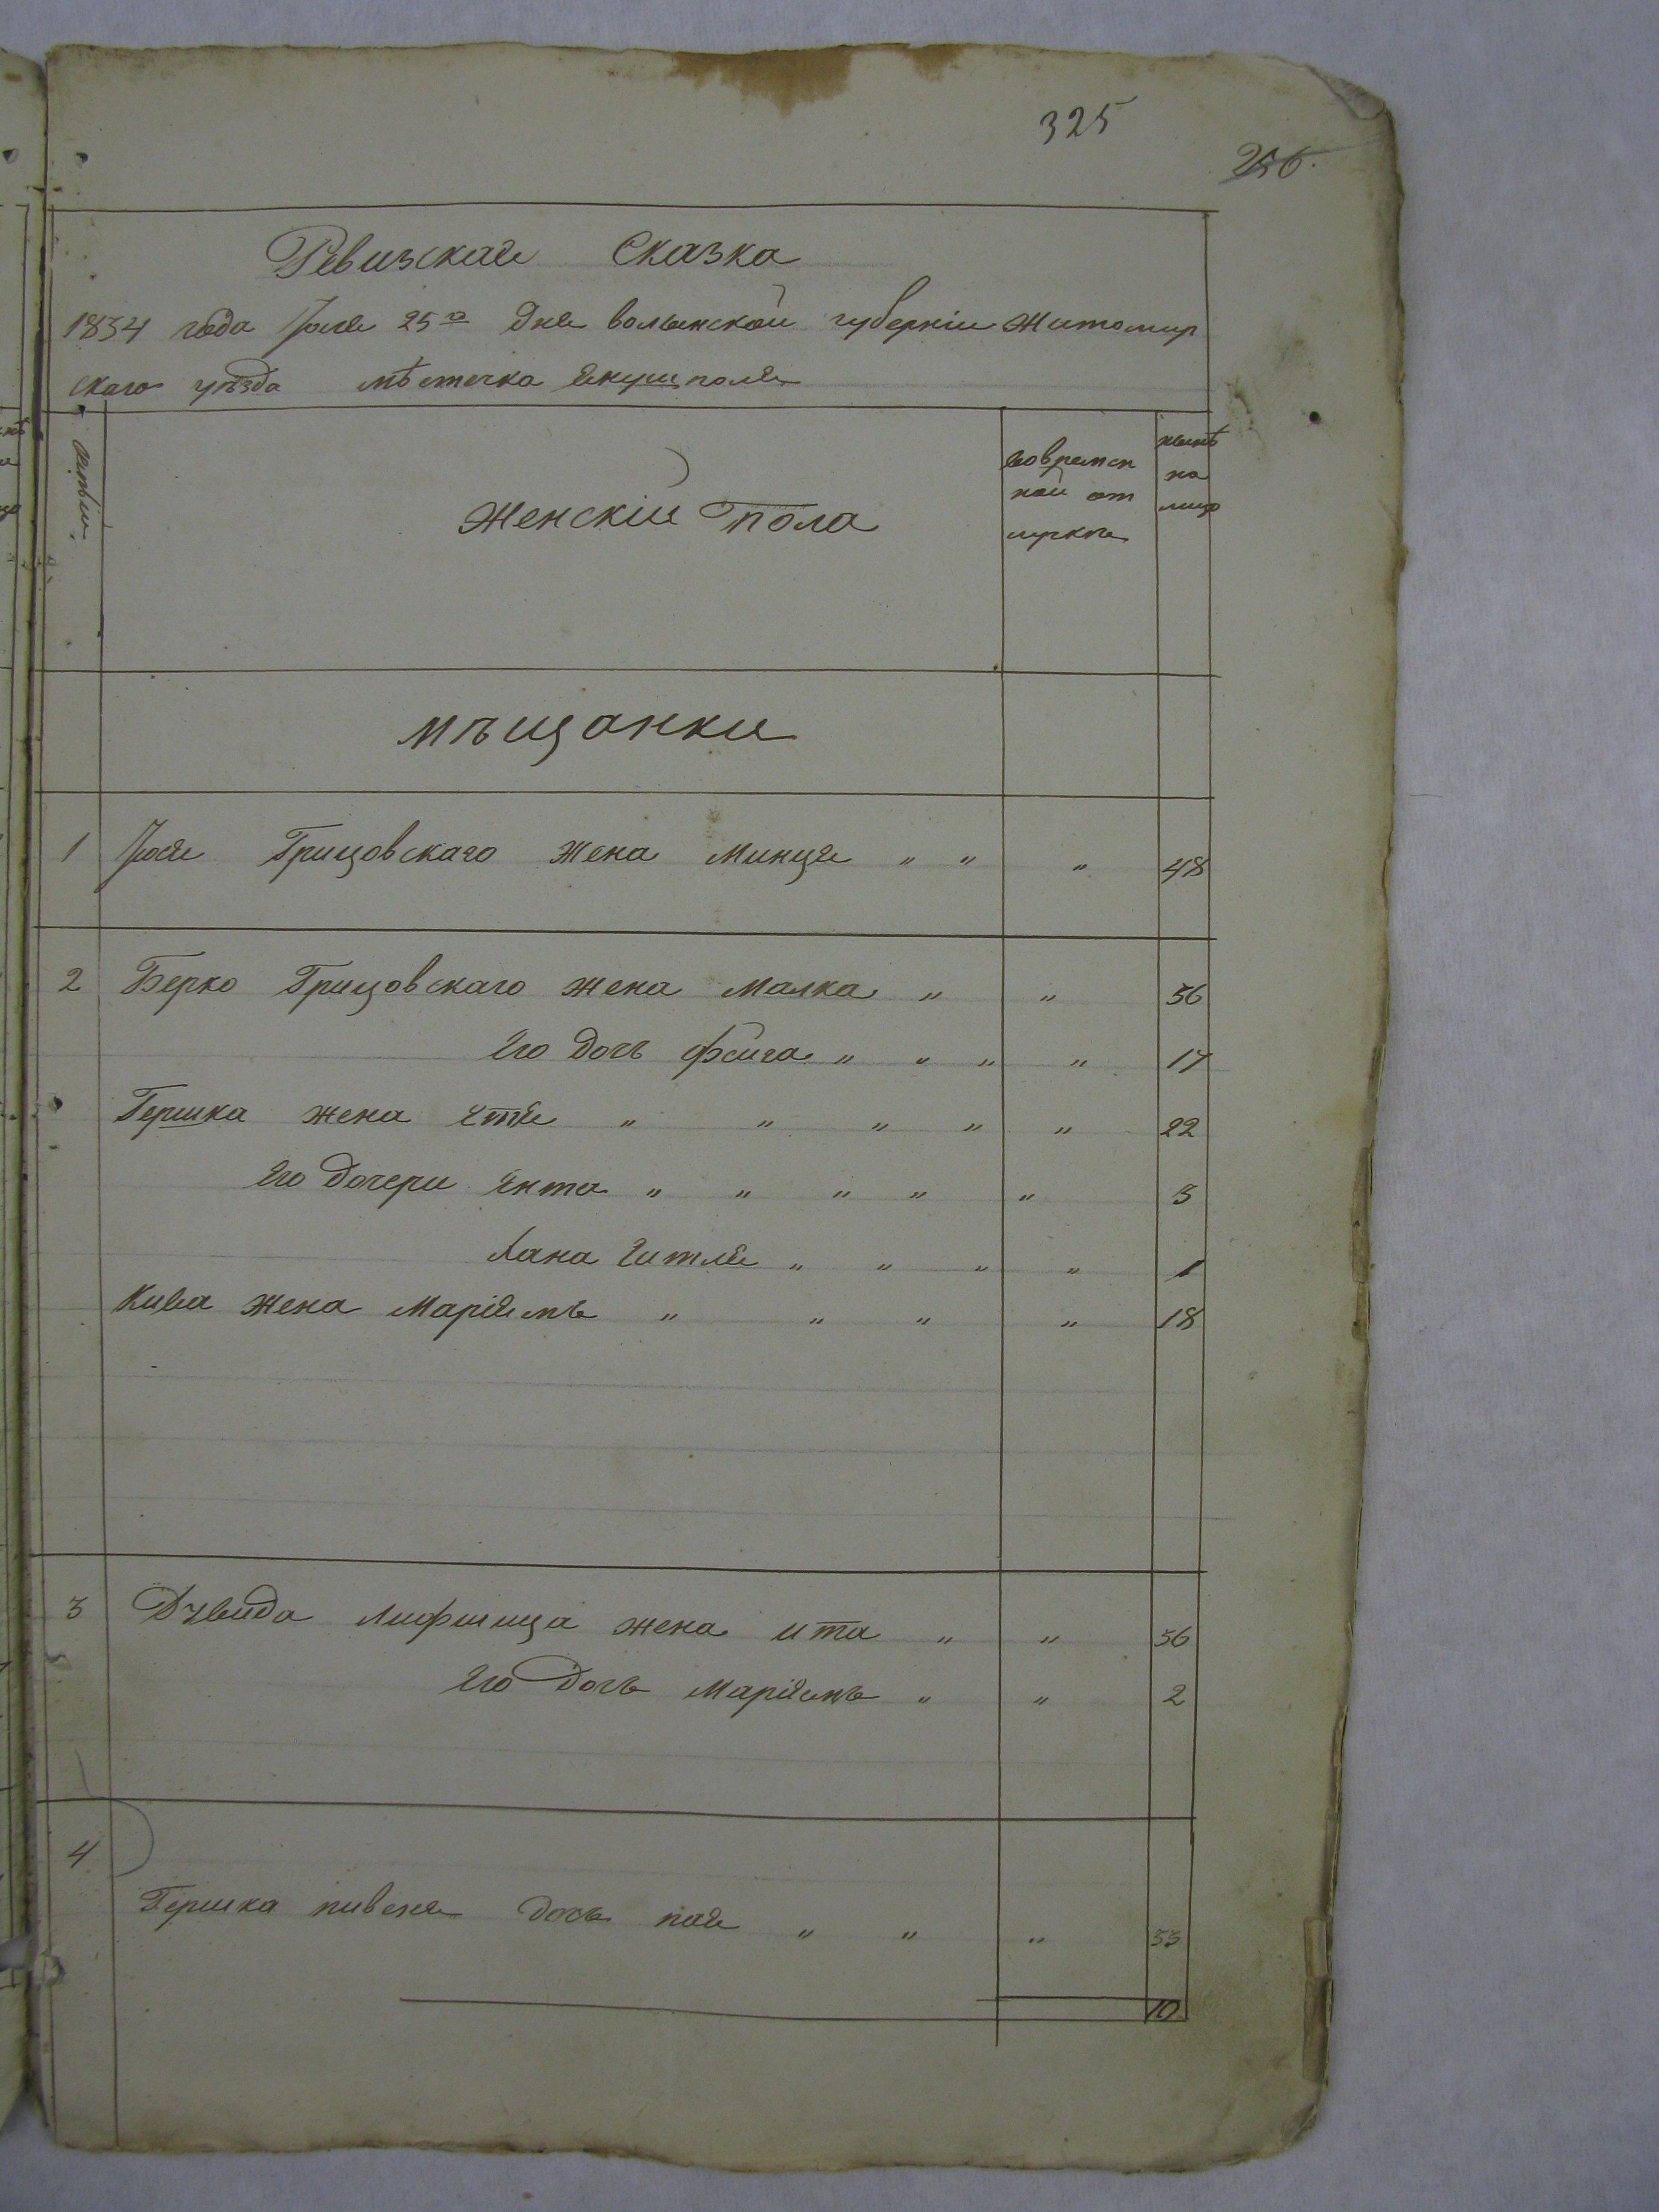 325
256.
Ревизская Сказка
1834 года Июля 25го дня волынской губернии Житомир
скаго уѣзда мѣстечка Янушполя
Женскій пола
во времен
ной от
лучке
нынѣ
на
лицо
мъщанки
1 Иося Грицовскаго жена Минця " " " 48
2 Берко Грицовскаго жена Малка " " 56
Его дочь Фейга " " " " 17
Гершка жена Етя " " " " " 22
Его дочери Ента " " " " " 3
Хана Гитля " " " " 1
Кива жена Маріямъ " " " " 18
3 Дувида Лифшица жена ита " " 56
Его дочь Маріямъ " " 2
4
Гершка пивеня дочь пая " " " 53
10